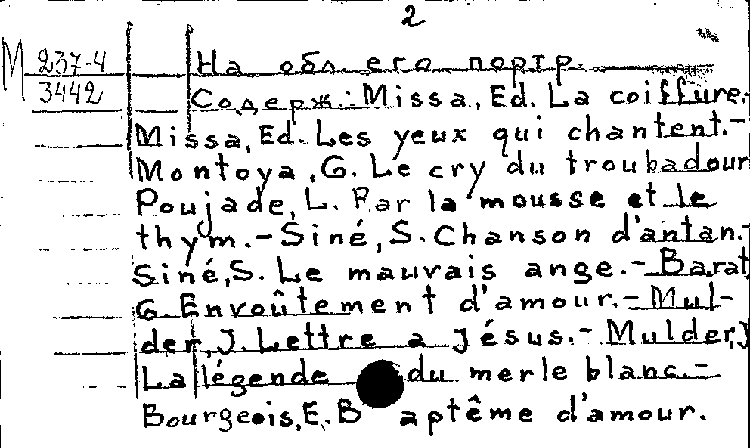 2
М 237-4
3442
На обл его портр.
Содерж.: Missa, Ed. La coiffure.-
Missa, Ed. Les yeux qui chantent.-
Montoya, G. Le cry du troubadour
Poujade, L. Par la mousse et le
thym.- Siné, S. Chanson d'antan.-
Siné, S. Le mauvais ange.- Barat
G. Envoûtement d'amour.- Mul-
der, J. Lettre a Jésus.- Mulder, J
La légende du merle blanc.-
Bourgeois, E. B aptême d'amour.